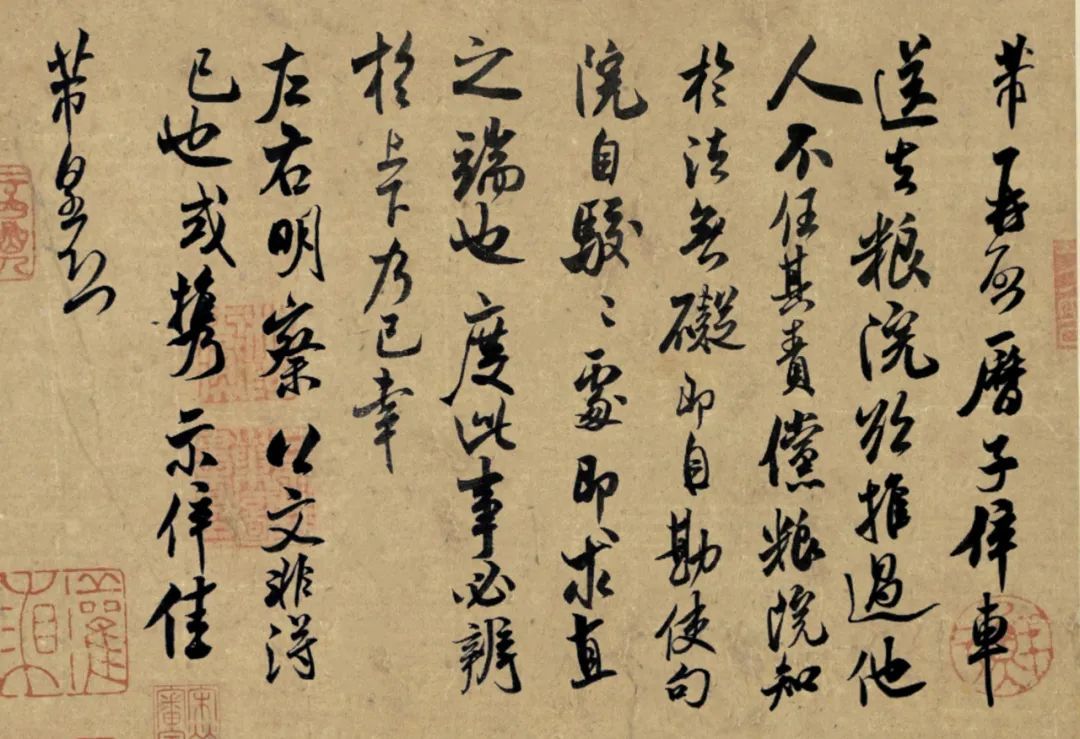 芾再啓曆子倅車
送去粮院欲推過他
人不任其責儻粮院知
於法無礙即自勘使句
院自駮〻處即求直
之端也度此事必辨
於上下乃已幸
左右明察公文非得
已也或携示倅佳
芾皇恐